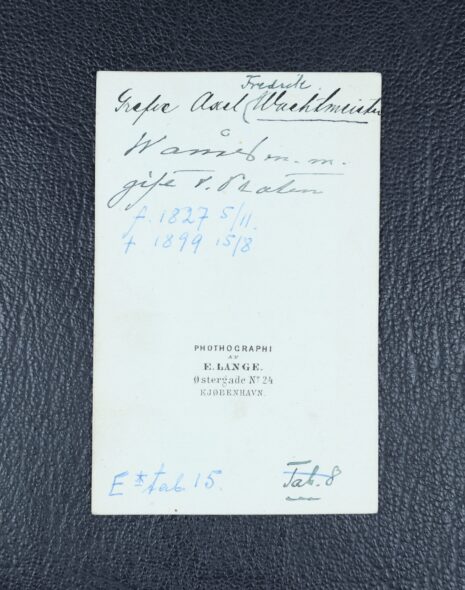 Fredrik
Grefve Axel Wachtmeister
Wanås m. m.
gift v. Platen
f. 1827 5/11.
† 1899 15/8
PHOTHOGRAPHI
AF
E. LANGE.
Østergade Nº 24
KJØBENHAVN.
E* tab 15.
Tab. 8